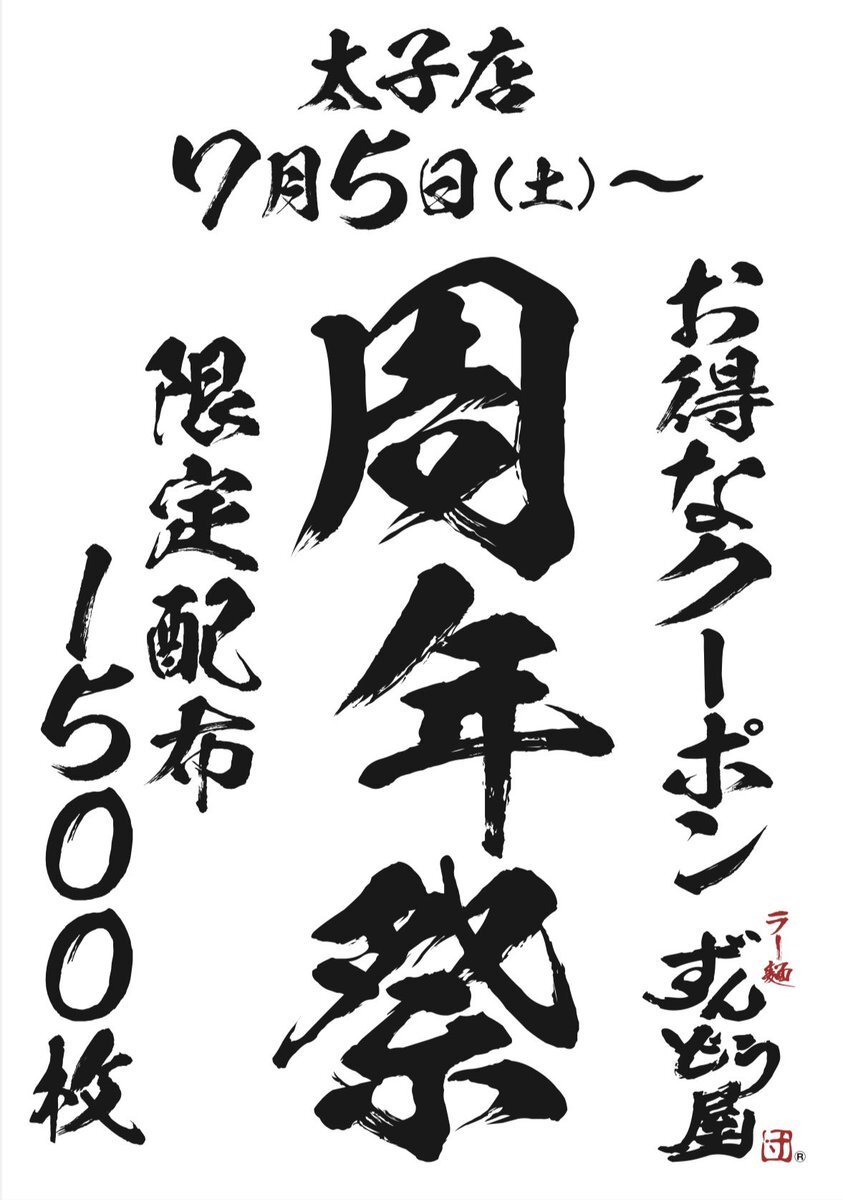 太子店
7月5日(土)〜
お得なクーポン
周年祭
限定配布
1500枚
ラー麺
ずんどう屋
団
®